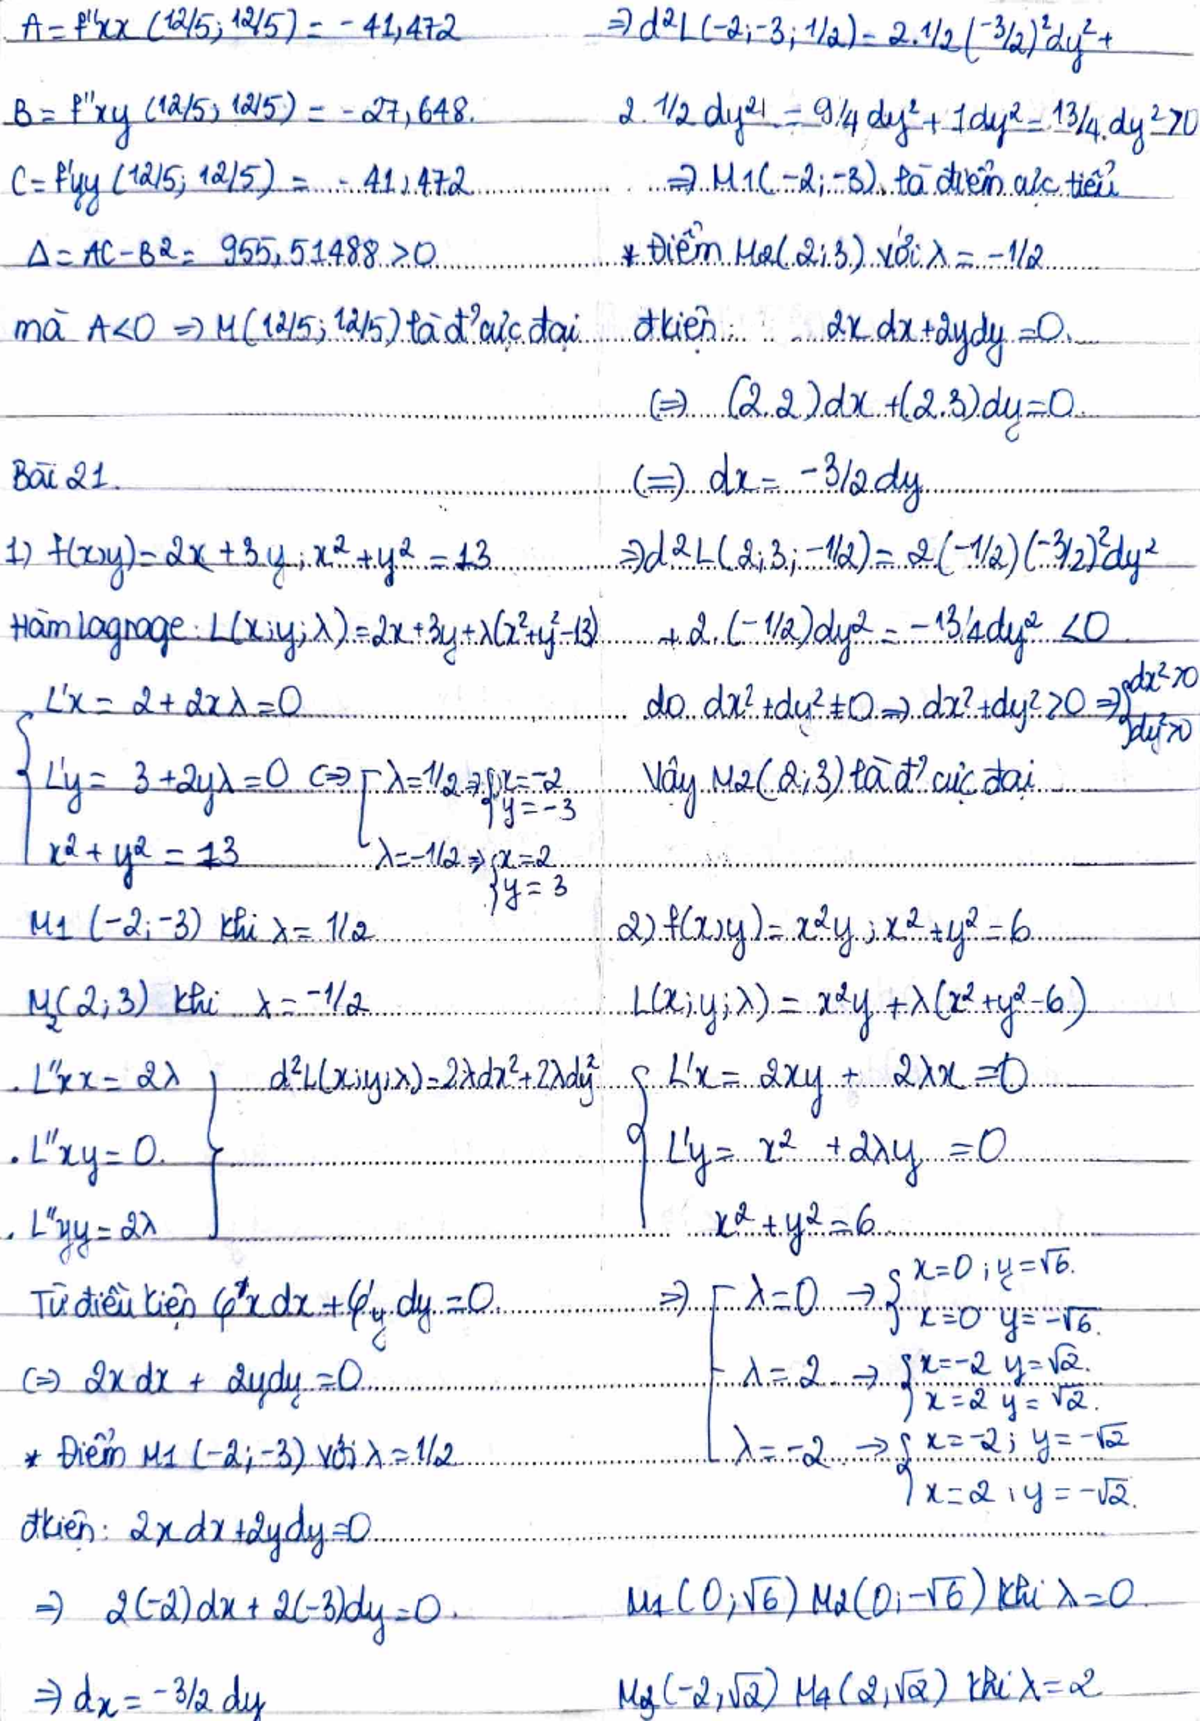 A = f''xx (12/5; 12/5) = - 41,472
B = f''xy (12/5; 12/5) = - 27,648.
C = f''yy (12/5; 12/5) = - 41,472
Δ = AC - B² = 955,51488 > 0
mà A<0 => M(12/5; 12/5) là đ' cực đại
Bài 21.
1) f(x;y) = 2x + 3y ; x² + y² = 13
Hàm lagrage: L(x;y;λ) = 2x+3y+λ(x²+y²-13)
L'x = 2 + 2xλ = 0
L'y = 3 + 2yλ = 0 <=> [ λ = 1/2 => { x = -2
y = -3
x² + y² = 13 λ = -1/2 => { x = 2
y = 3
M1 (-2; -3) khi λ = 1/2
M2 (2; 3) khi λ = -1/2
. L''xx = 2λ } d²L(x;y;λ) = 2λdx² + 2λdy²
. L''xy = 0.
. L''yy = 2λ
Từ điều kiện φ'x dx + φ'y dy = 0
<=> 2x dx + 2y dy = 0
* Điểm M1 (-2; -3) với λ = 1/2
đkiện: 2x dx + 2y dy = 0
=> 2(-2)dx + 2(-3)dy = 0.
=> dx = -3/2 dy
=> d²L(-2; -3; 1/2) = 2.1/2 (-3/2)² dy² +
2. 1/2 dy² = 9/4 dy² + 1dy² = 13/4. dy² > 0
=> M1(-2; -3) là điểm cực tiểu
* Điểm M2(2; 3) với λ = -1/2
đkiện: 2x dx + 2y dy = 0.
<=> (2.2)dx + (2.3)dy = 0
<=> dx = -3/2 dy
=> d²L(2; 3; -1/2) = 2(-1/2)(-3/2)² dy²
+ 2. (-1/2)dy² = -13/4 dy² < 0
do dx² + dy² ≠ 0 => dx² + dy² > 0 => { dx² > 0
dy² > 0
Vậy M2(2; 3) là đ' cực đại
2) f(x;y) = x²y ; x² + y² = 6
L(x;y;λ) = x²y + λ(x² + y² - 6)
L'x = 2xy + 2λx = 0
L'y = x² + 2λy = 0
x² + y² = 6
=> [ λ = 0 -> { x = 0 ; y = √6.
x = 0 y = -√6.
λ = 2 -> { x = -2 y = √2.
x = 2 y = √2.
λ = -2 -> { x = -2 ; y = -√2
x = 2 ; y = -√2.
M1 (0; √6) M2(0; -√6) khi λ = 0
M3 (-2; √2) M4 (2; √2) khi λ = 2